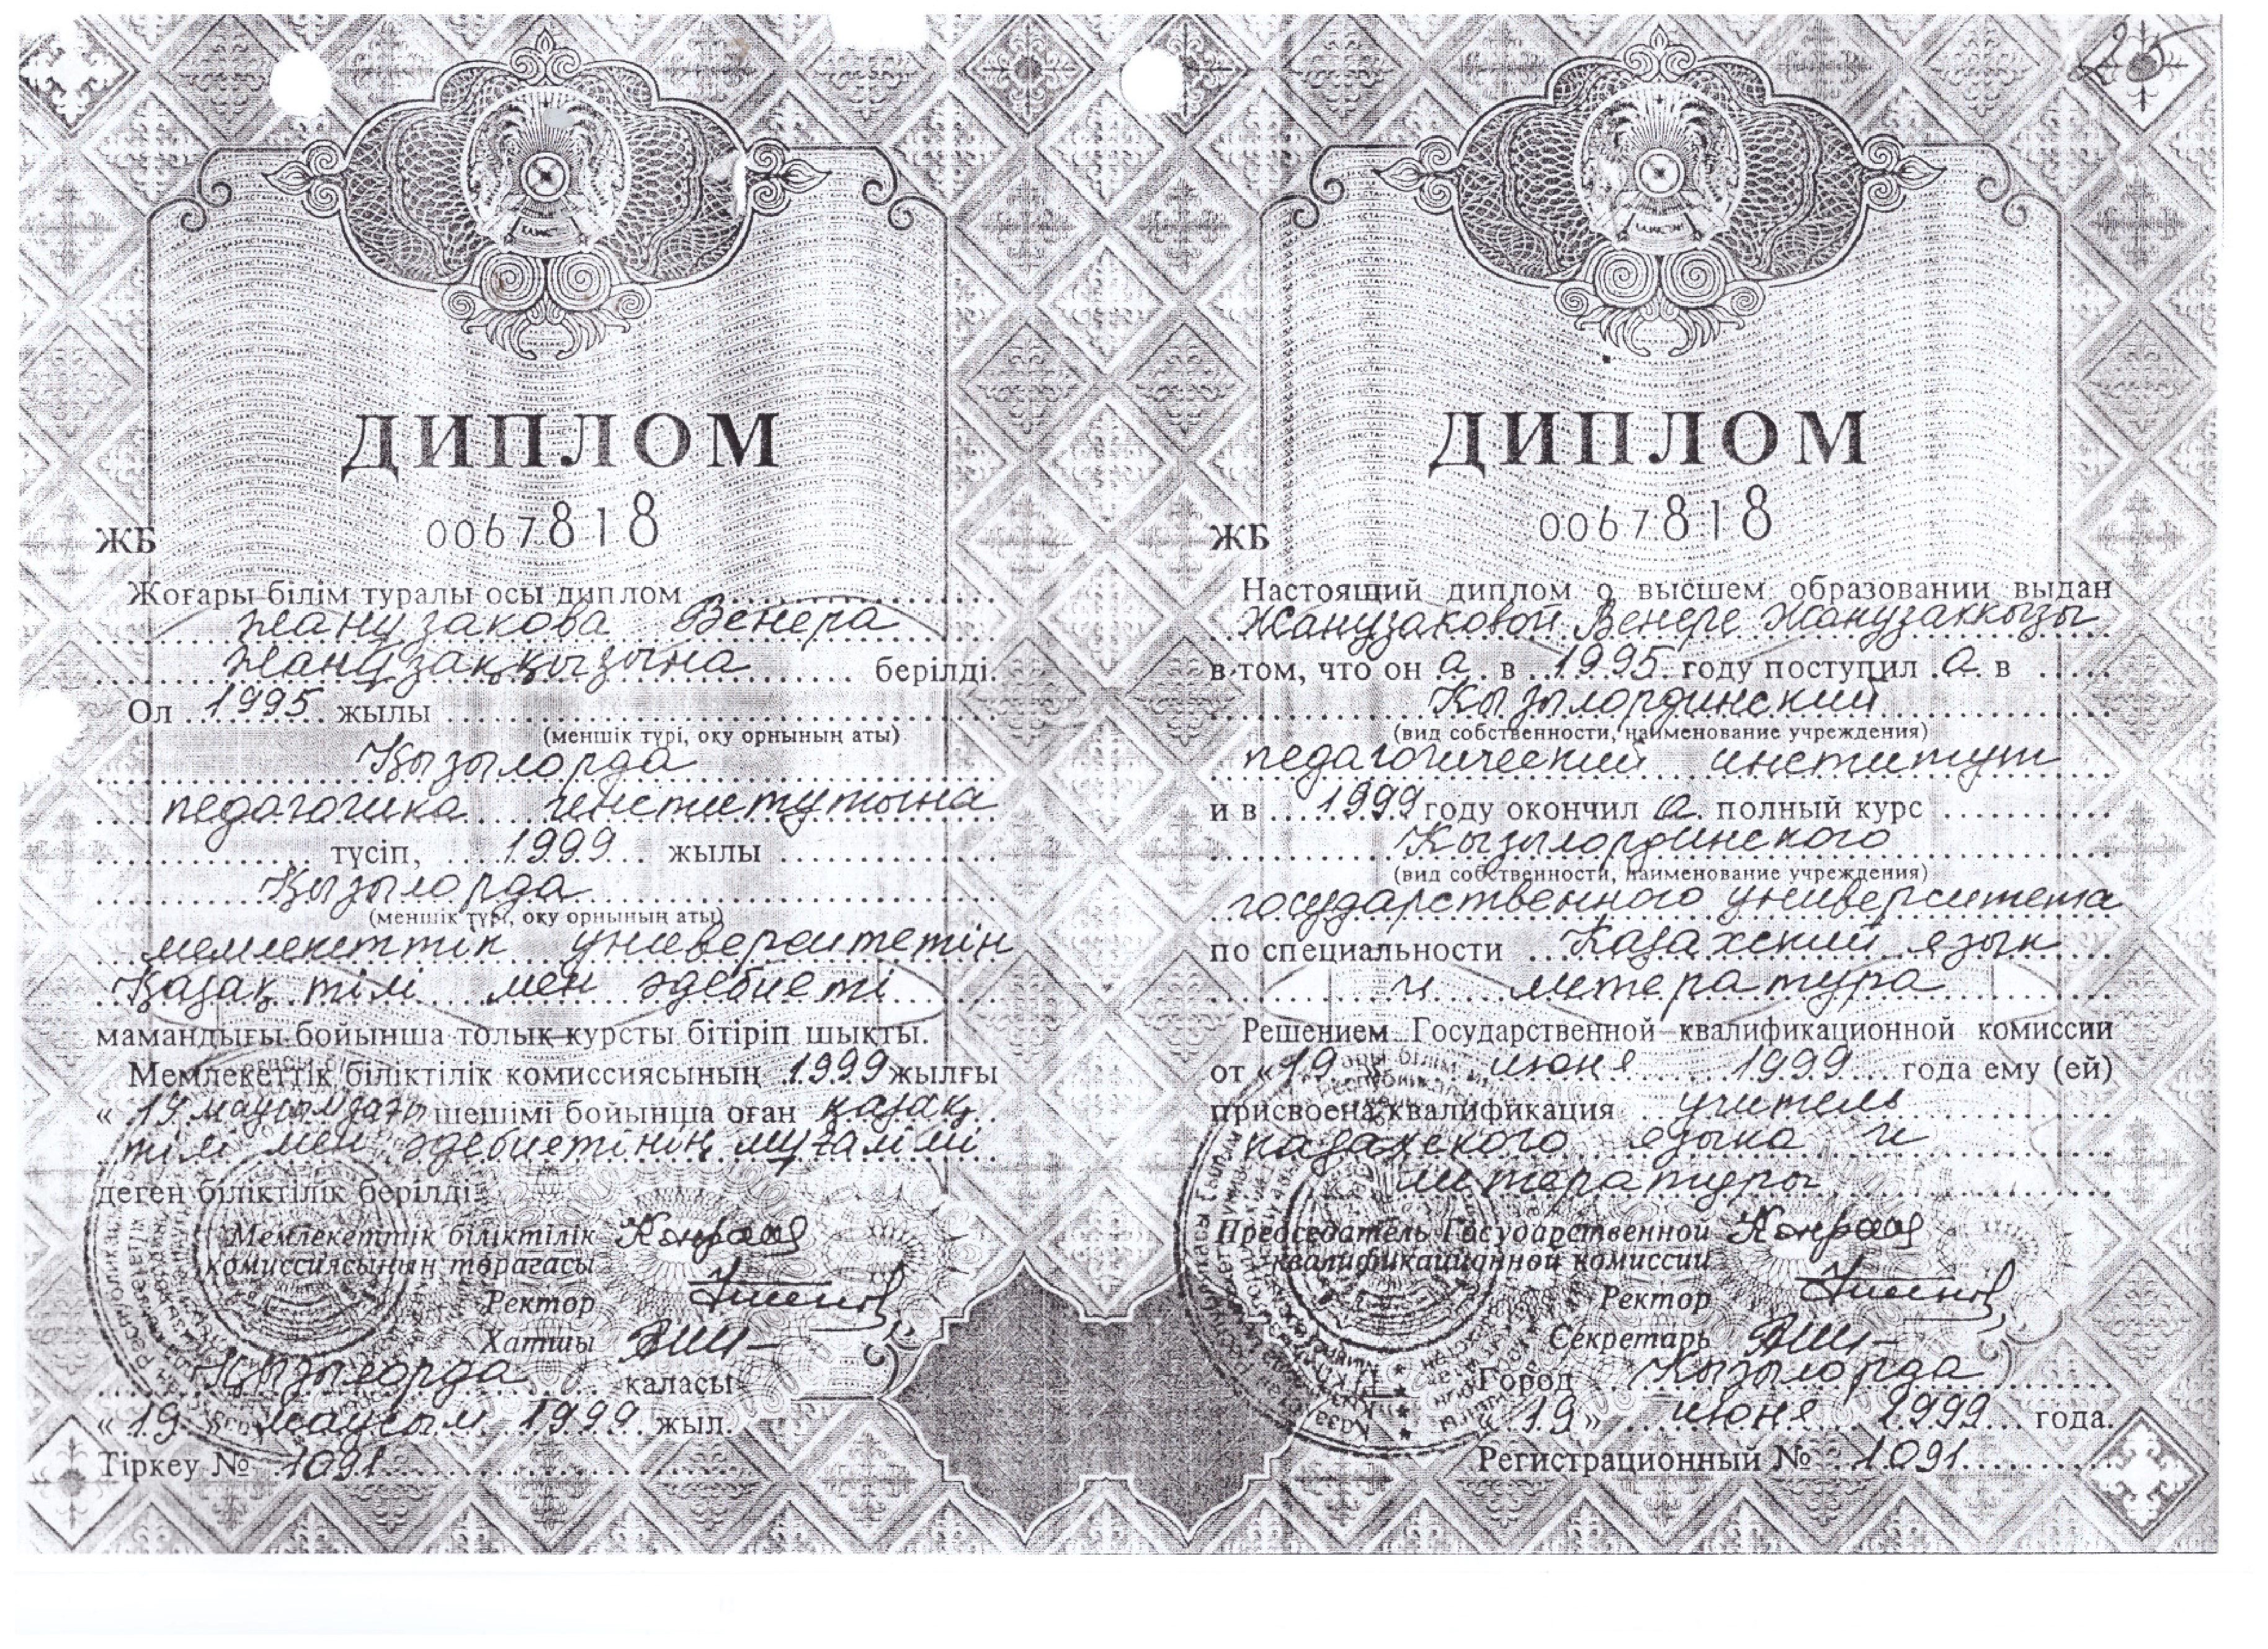 ДИПЛОМ
ЖБ 0067818
Жоғары білім туралы осы диплом
Жанузакова Венера
Жанұзаққызына берілді.
Ол 1995 жылы
(меншік түрі, оқу орнының аты)
Қызылорда
педагогика институтына
түсіп, 1999 жылы
Қызылорда
(меншік түрі, оқу орнының аты)
мемлекеттік университетін
Қазақ тілі мен әдебиеті
мамандығы бойынша толық курсты бітіріп шықты.
Мемлекеттік біліктілік комиссиясының 1999 жылғы
« 19 маусымдағы шешімі бойынша оған қазақ
тілі мен әдебиетінің мұғалімі
деген біліктілік берілді.
Мемлекеттік біліктілік
комиссиясының төрағасы
Ректор
Хатшы
Қызылорда қаласы
« 19 » маусым 1999 жыл.
Тіркеу № 1091
25
ДИПЛОМ
ЖБ 0067818
Настоящий диплом о высшем образовании выдан
Жанузаковой Венере Жанузаккызы
в том, что он а в 1995 году поступил а в
Кызылординский
(вид собственности, наименование учреждения)
педагогический институт
и в 1999 году окончил а полный курс
Кызылординского
(вид собственности, наименование учреждения)
государственного университета
по специальности Казахский язык
и литература
Решением Государственной квалификационной комиссии
от « 19 » июня 1999 года ему (ей)
присвоена квалификация учитель
казахского языка и
литературы
Председатель Государственной
квалификационной комиссии
Ректор
Секретарь
Город Кызылорда
« 19 » июня 1999 года.
Регистрационный № 1091